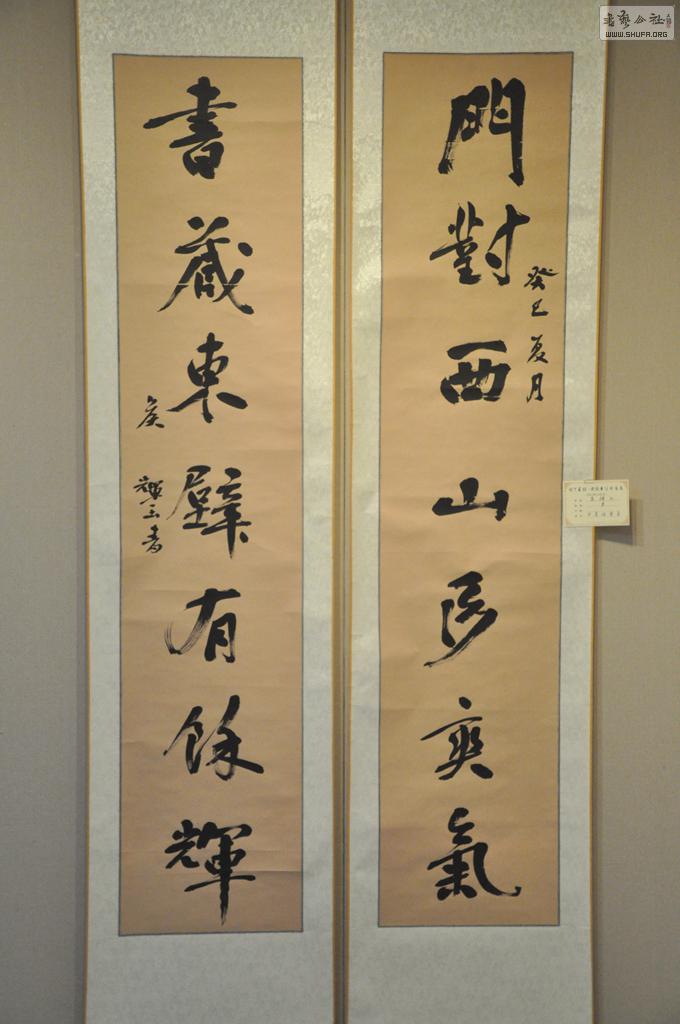 門對西山多爽氣
癸巳夏月
書藏東壁有餘輝
書藝公社
WWW.SHUFA.ORG